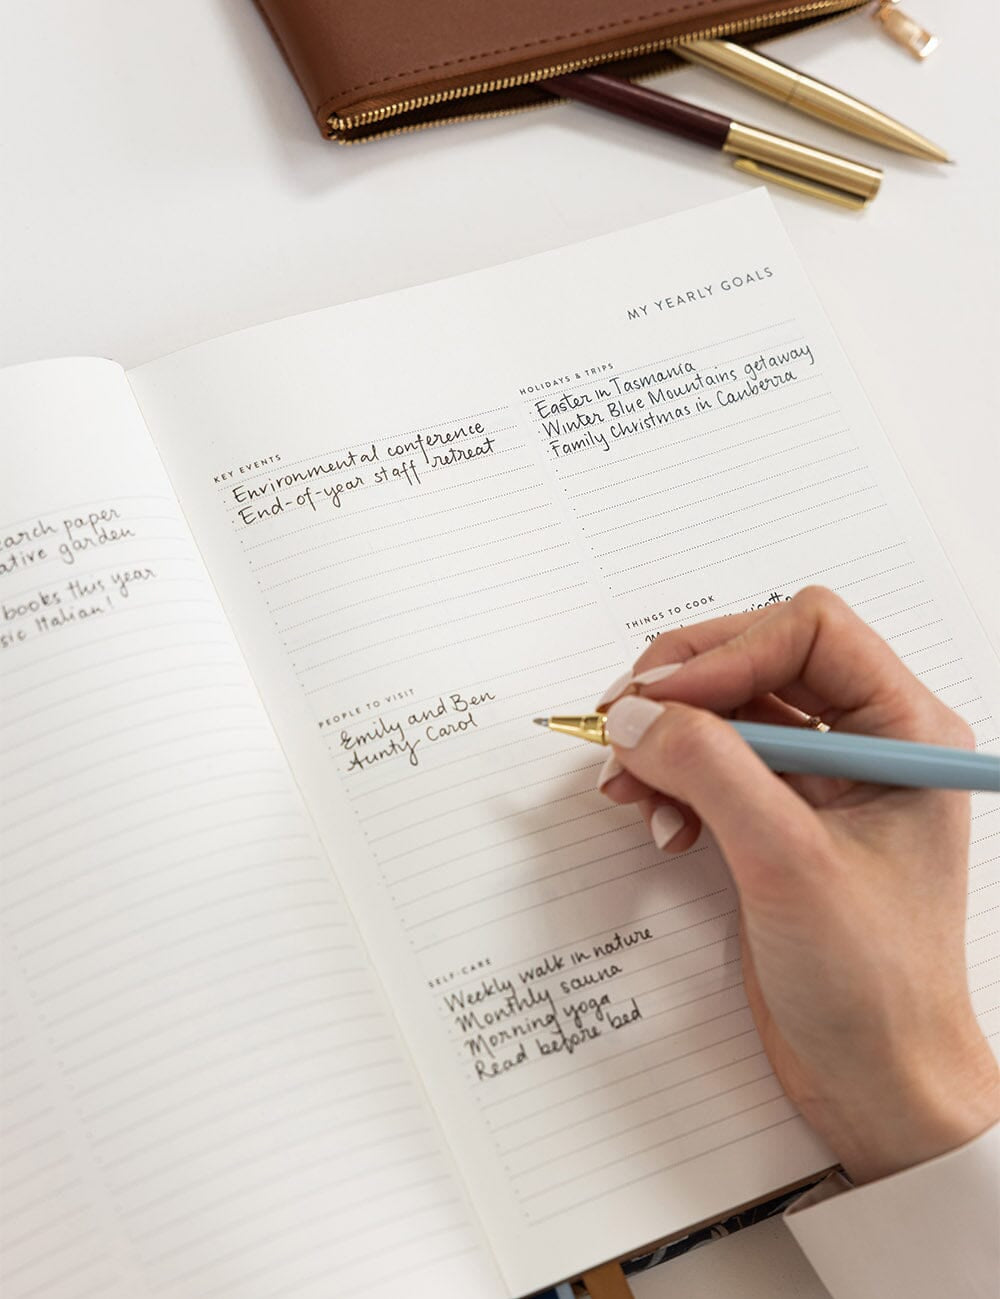 earch paper
ative garden
books this year
sic Italian!
MY YEARLY GOALS
KEY EVENTS
Environmental conference
End-of-year staff retreat
HOLIDAYS & TRIPS
Easter in Tasmania
Winter Blue Mountains getaway
Family Christmas in Canberra
PEOPLE TO VISIT
Emily and Ben
Aunty Carol
THINGS TO COOK
SELF-CARE
Weekly walk in nature
Monthly sauna
Morning yoga
Read before bed